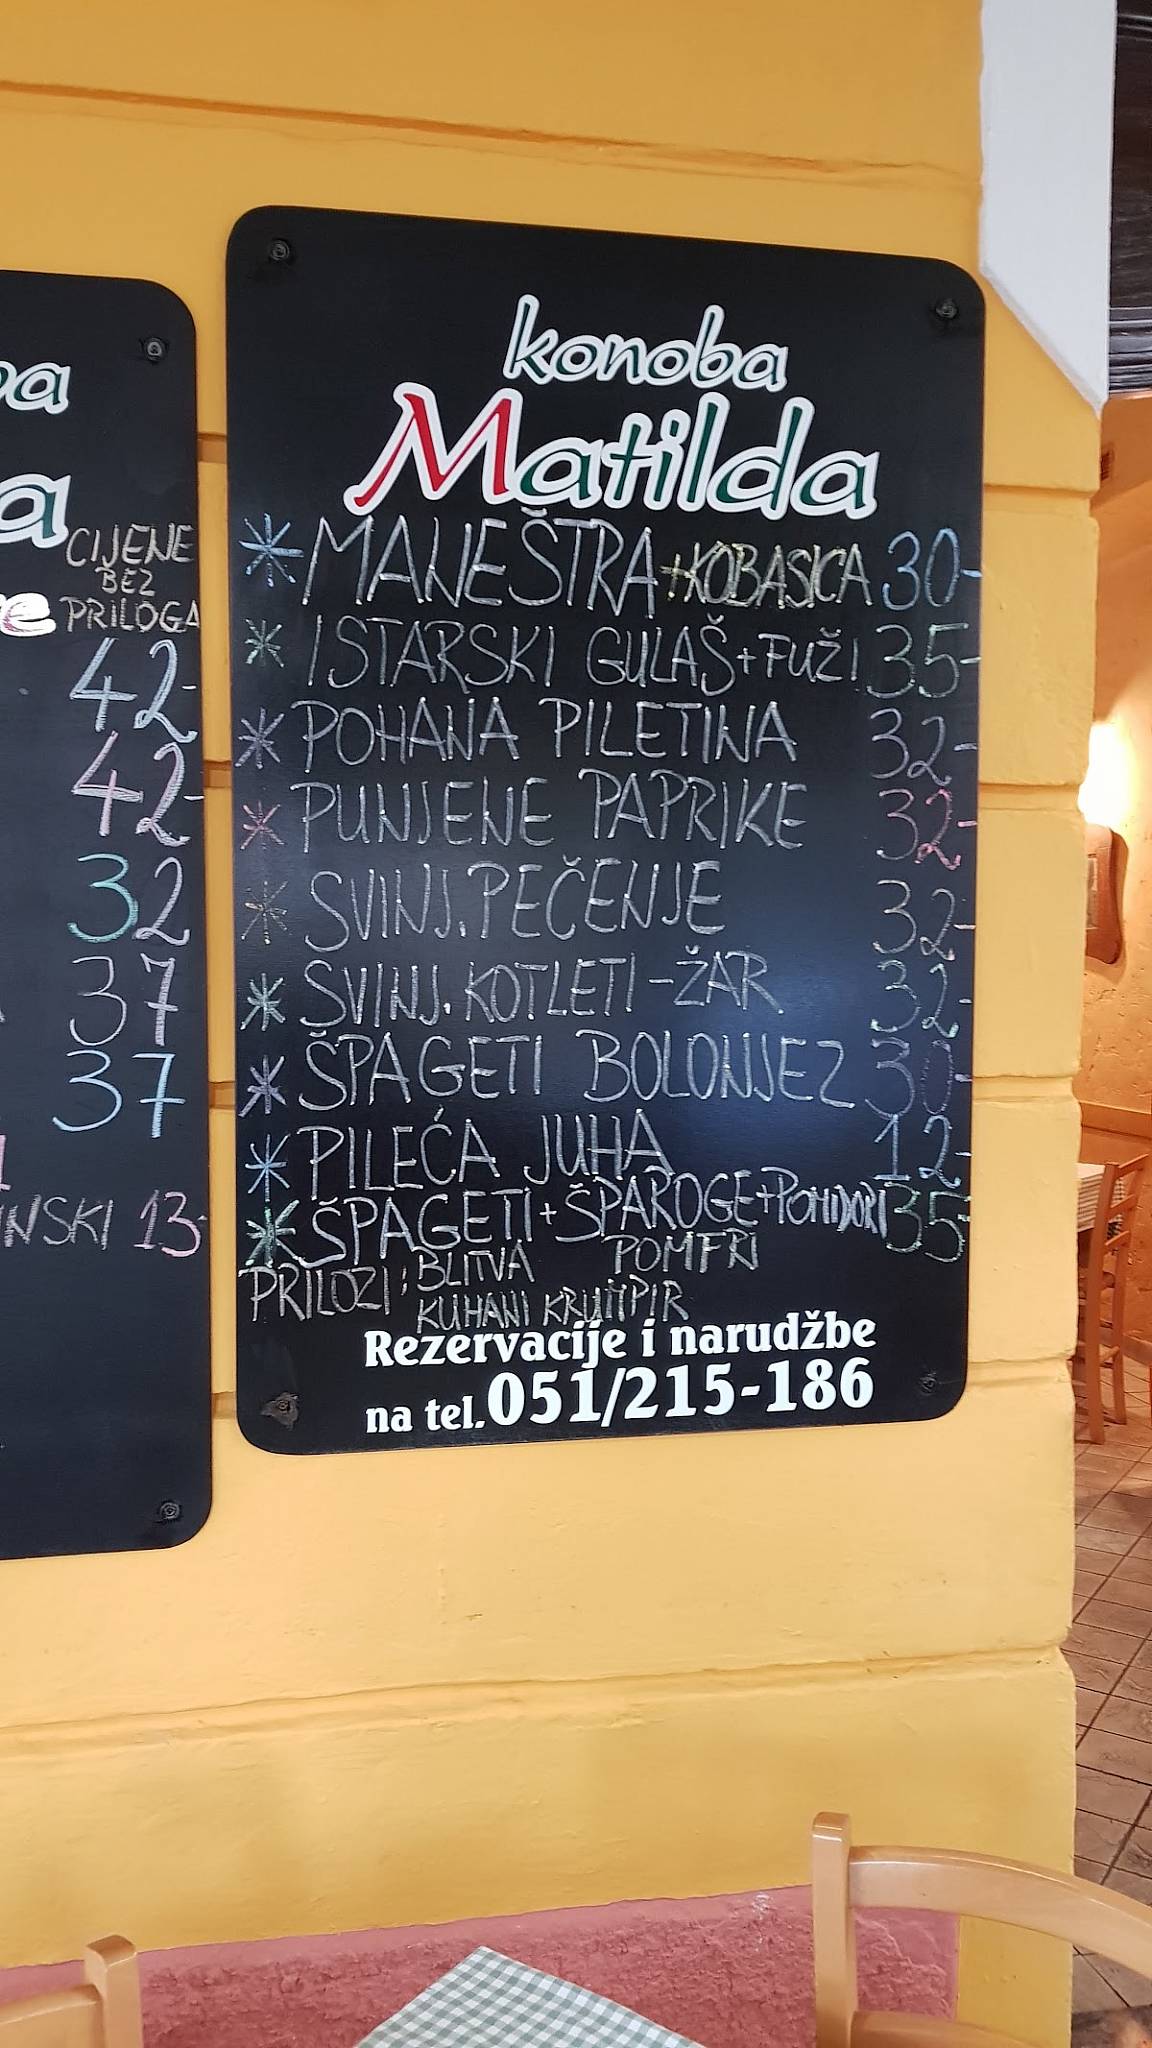 CIJENE
BEZ
PRILOGA
42-
42-
32
37
37
13-
konoba
Matilda
MANEŠTRA+KOBASICA 30-
ISTARSKI GULAŠ+FUŽI 35-
POHANA PILETINA 32-
PUNJENE PAPRIKE 32-
SVINJ.PEČENJE 32-
SVINJ.KOTLETI-ŽAR 32-
ŠPAGETI BOLONJEZ 30-
PILEĆA JUHA 12-
ŠPAGETI+ŠPAROGE+POMIDORI 35-
PRILOZI: BLITVA POMFRI
KUHANI KRUMPIR
Rezervacije i narudžbe
na tel.051/215-186